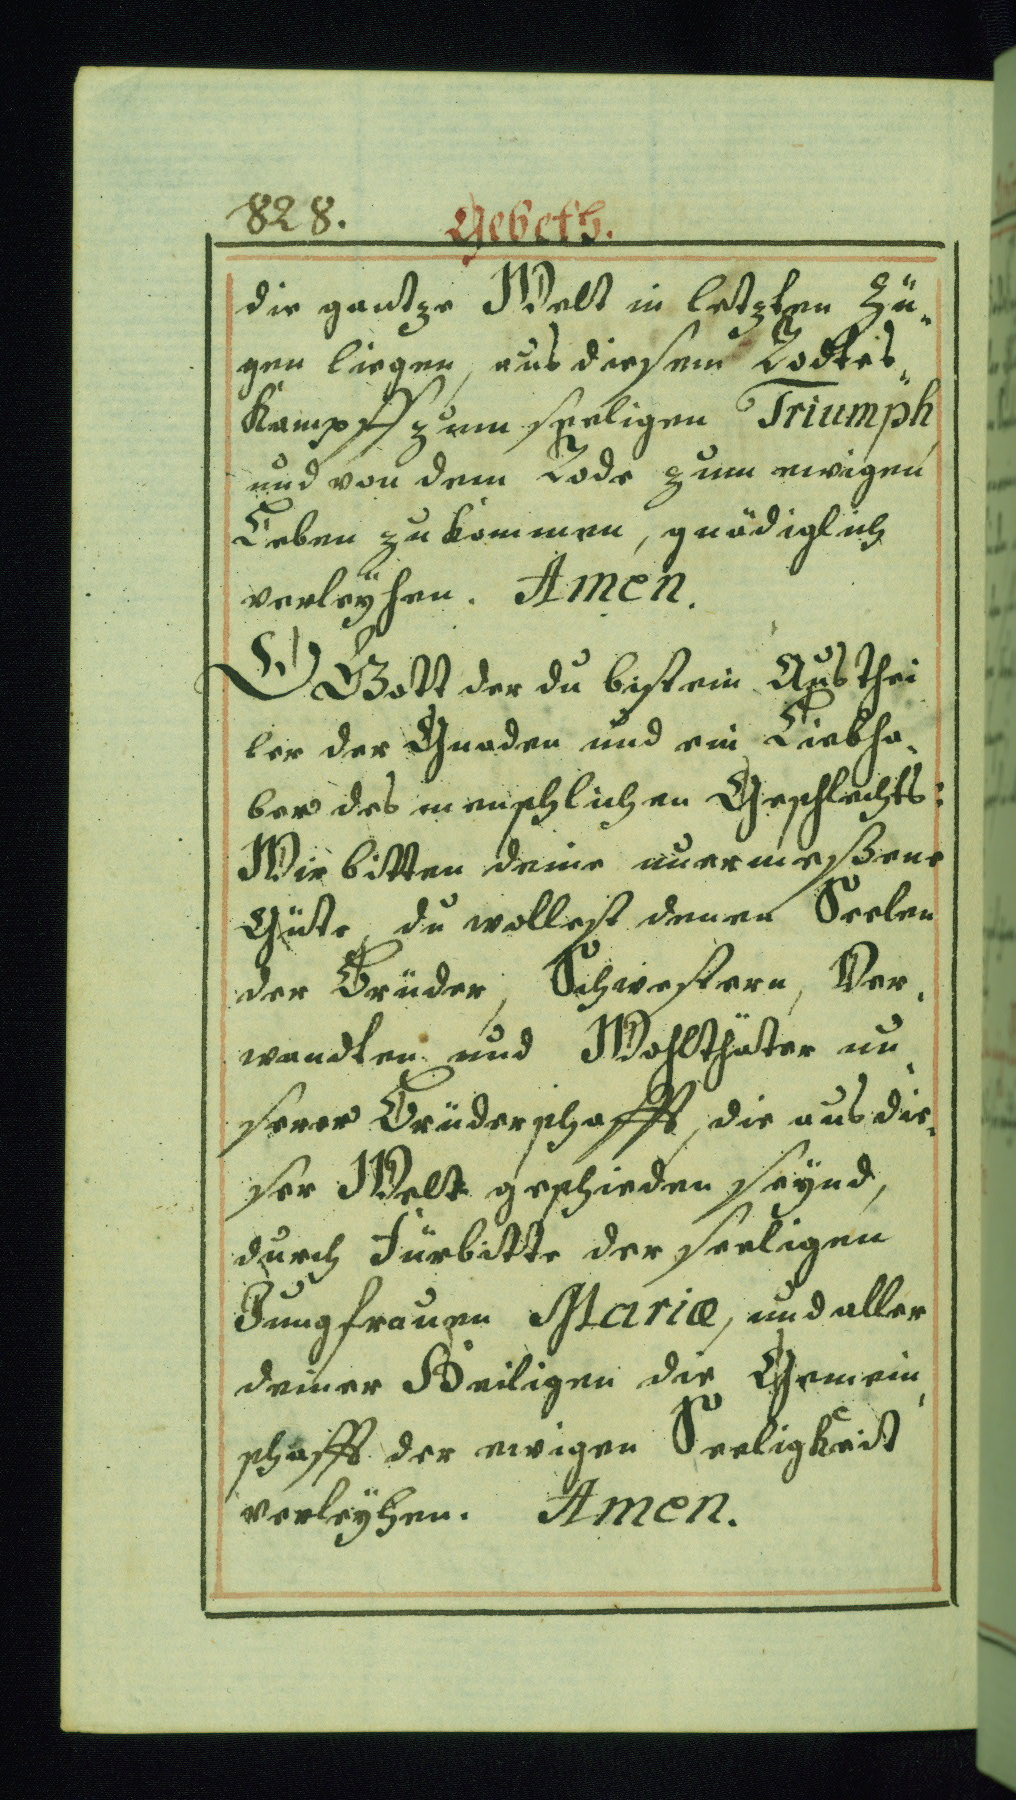 828. Gebeth.
die gantze Welt in letzten Zü-
gen liegen, aus diesem Todtes-
kampff zum seeligen Triumph,
und von dem Tode zum ewigen
Leben zu kommen, gnädiglich
verleÿhen. Amen.
O Gott der du bist ein Austhei
ler der Gnaden und ein Liebha-
ber des menschlichen Geschlechts:
Wir bitten deine unermeßene
Güte, du wollest denen Seelen
der Brüder, Schwestern, Ver-
wandten und Wohlthäter un-
serer Brüderschafft, die aus die-
ser Welt geschieden seÿnd,
durch Fürbitte der seeligen
Jungfrauen Mariæ, und aller
deiner Heiligen die Gemein-
schafft der ewigen Seeligkeit
verleÿhen. Amen.